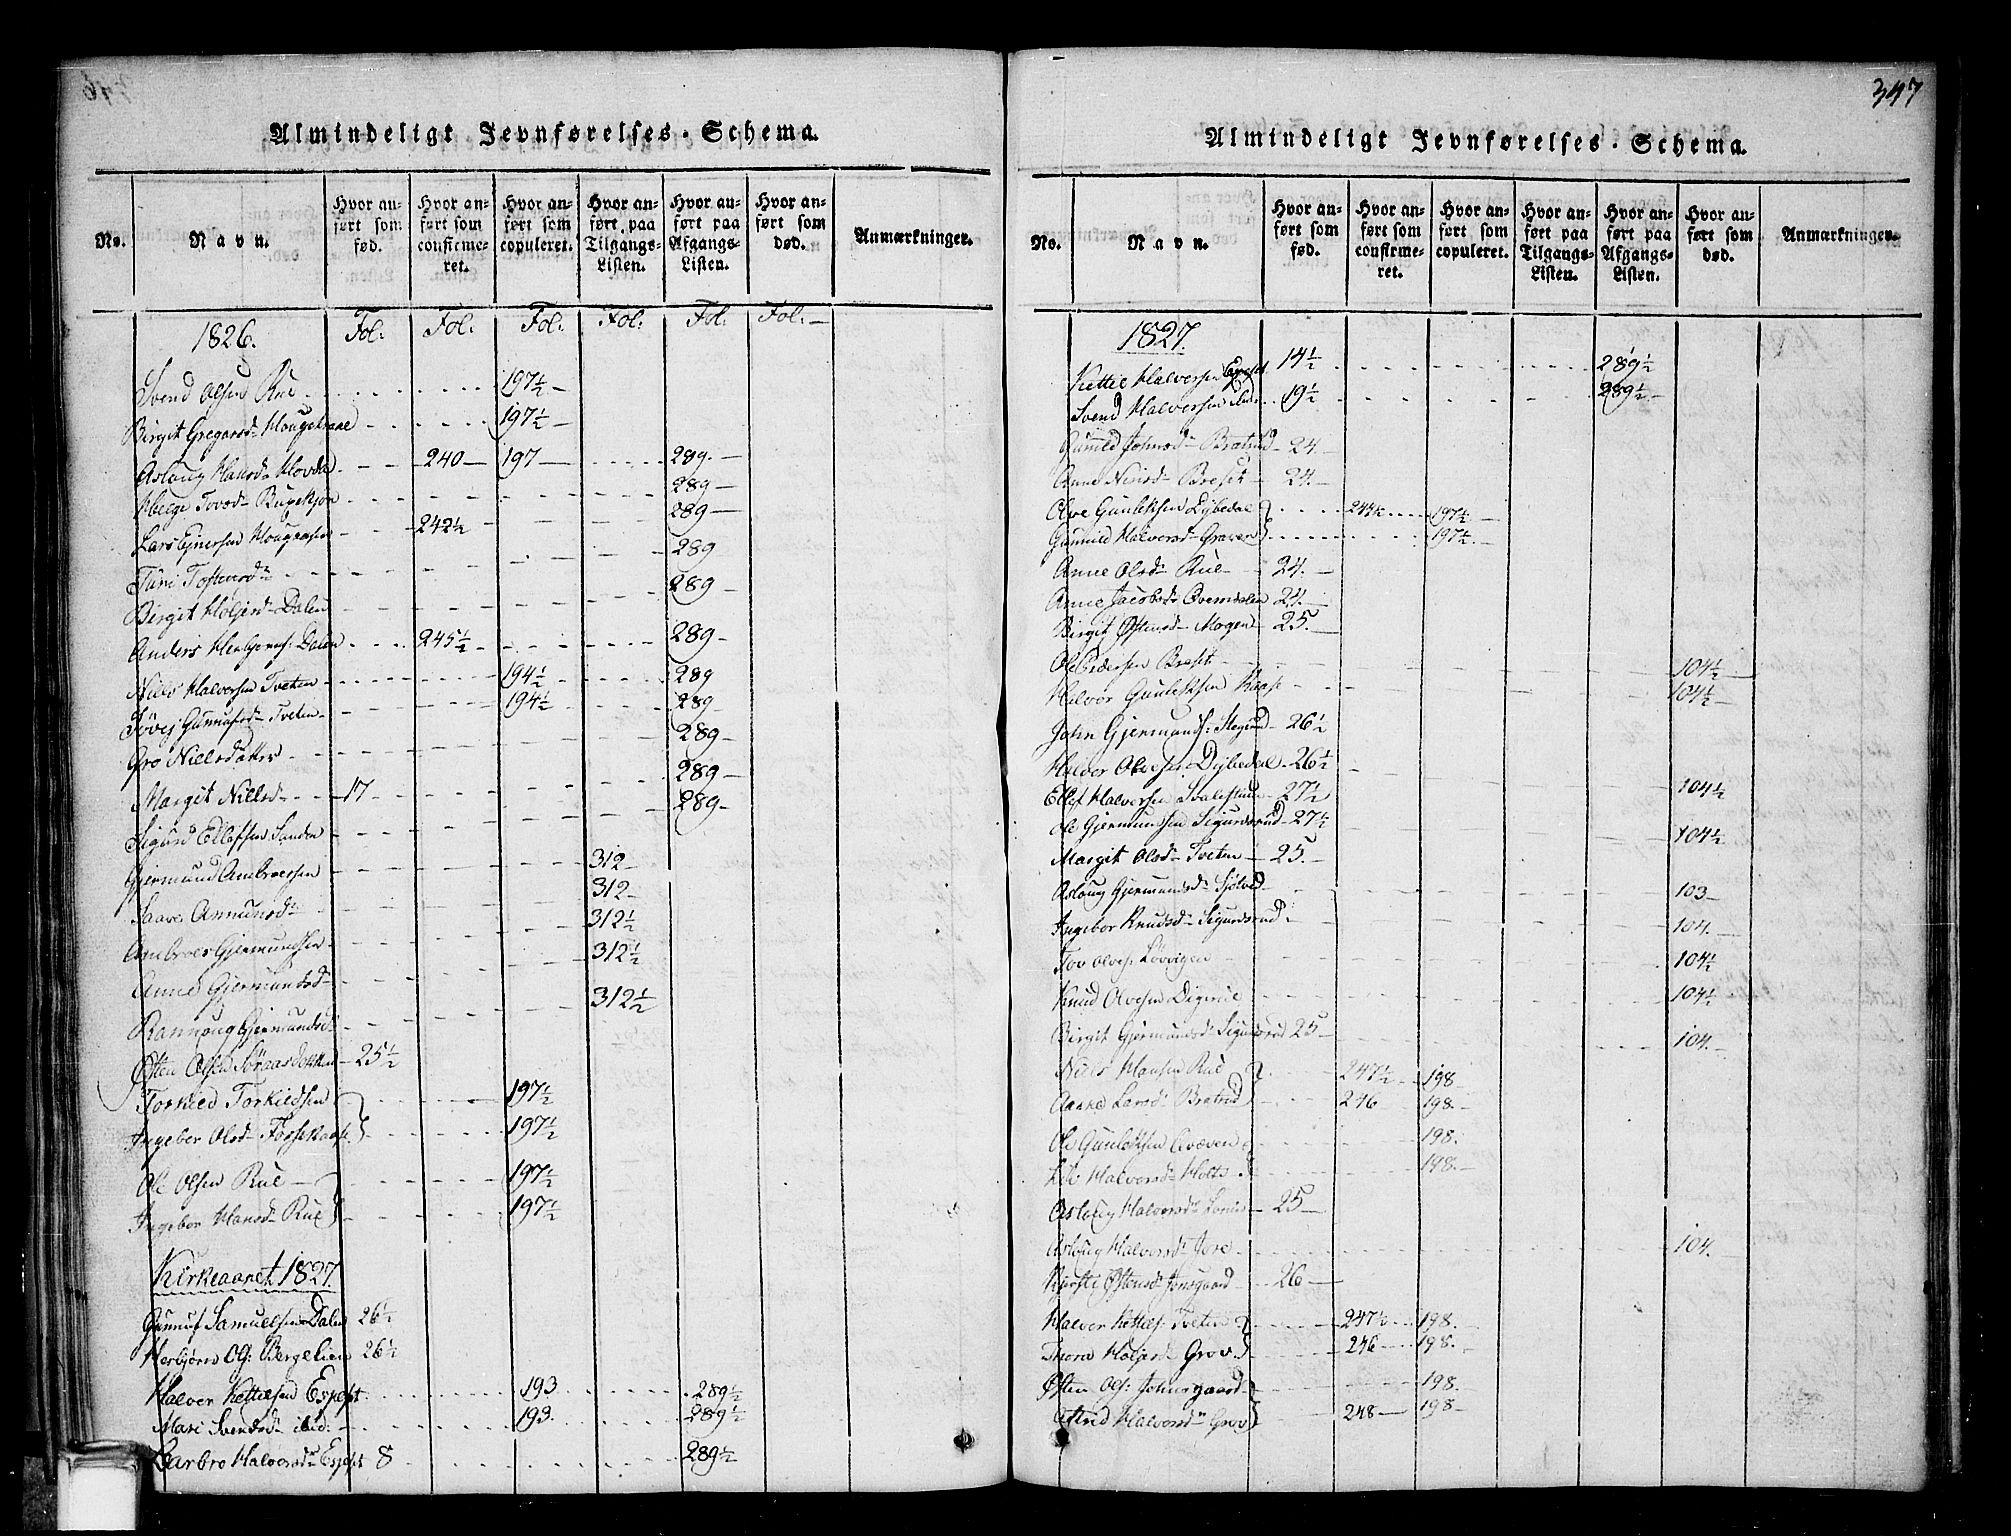 Almindeligt Jevnførelses-Schema.
No. Navn. Hvor anført som fød. Hvor anført som confirmeret. Hvor anført som copuleret. Hvor anført paa Tilgangs-Listen. Hvor anført paa Afgangs-Listen. Hvor anført som død. Anmærkninger.
1826. Fol: Fol: Fol: Fol: Fol: Fol:
Svend Olsen Rue 197½
Birgit Gregarsd. 197½
Aslaug Hansd. Hovde 240 197 289
Helge Tovsd. 289
Lars Ejnersen 242½ 289
Turi Tostensd. 289
Birgit Holjersd. Dalen 289
Anders Herbjørns: Dalen 245½ 289
Niels Halversen Tveten 194½ 289
Tövej Gunnufsd. Tveten 194½ 289
Gro Nielsdatter 289
Margit Nielsd. 17 289
Sigurd Ellefsen Sanden 289
Gjermund Ambrosen 312
Saave Amundsd. 312
Ambroes Gjermundsen 312½
Anne Gjermundsd. 312½
Rannoug Gjermundsd. 312½
Østen Olsen Söraasdokken 25½
Torkild Torkildsen 197½
Ingebor Olsd. Fossekaase 197½
Ole Olsen Rue 197½
Ingebor Hansd. Rue 197½
Kirkeaaret 1827.
Gunnuf Samuelsen Dalen 26½
Herbjörn Ols: Bergelien 26½
Halver Kettelsen Espeset 193 289½
Mari Svendsd. ibid. 193. 289½
Barbro Halversd. Espeset 8 289½
347
Almindeligt Jevnførelses-Schema.
No. Navn. Hvor anført som fød. Hvor anført som confirmeret. Hvor anført som copuleret. Hvor anført paa Tilgangs-Listen. Hvor anført paa Afgangs-Listen. Hvor anført som død. Anmærkninger.
1827.
Kettil Halversen Espeset 14½ 289½
Svend Halversen ibid. 19½ 289½
Gunild Johnsd. Bratrud 24.
Anne Nirisd. Breset 24.
Olve Gunleksen Dybedal 197½
Gunnild Halversd. Graven 197½
Anne Olsd. Rue 24.
Anne Jacobsd. 24.
Birgit Østensd. Mogen 25.
Ole Pedersen Breset 104½
Halvor Gunleksen Kaase 104½
John Gjermunds: 26½
Halvor Olvesen Dybedal 26½
Ellef Halversen 27½ 104½
Ole Gjermundsen Sigurdsrud 27½ 104½
Margit Olsd. Tveten 25.
Aslaug Gjermundsd. 103
Ingebor Knudsd. Sigurdsrud 104.
Tov Olves. Lövvigen 104½
Knud Olvesen Digerud 104½
Birgit Gjermundsd. Sigurdsrud 25 104.
Niels Hansen Rue 247½ 198
Aaste Larsd. Bratrud 246 198.
Ole Gunleksen 198.
Liv Halversd. Holte 198.
Aslaug Halversd. 25
Aslaug Halversd. Jore 104.
Kirsti Østensd. Jonsgaard 26
Halver Kettels. Tveten 247½ 198.
Thone Holjersd. Grov 246 198.
Østen Ols: Johnsgaard 198.
Astrid Halversd. Grov 248 198